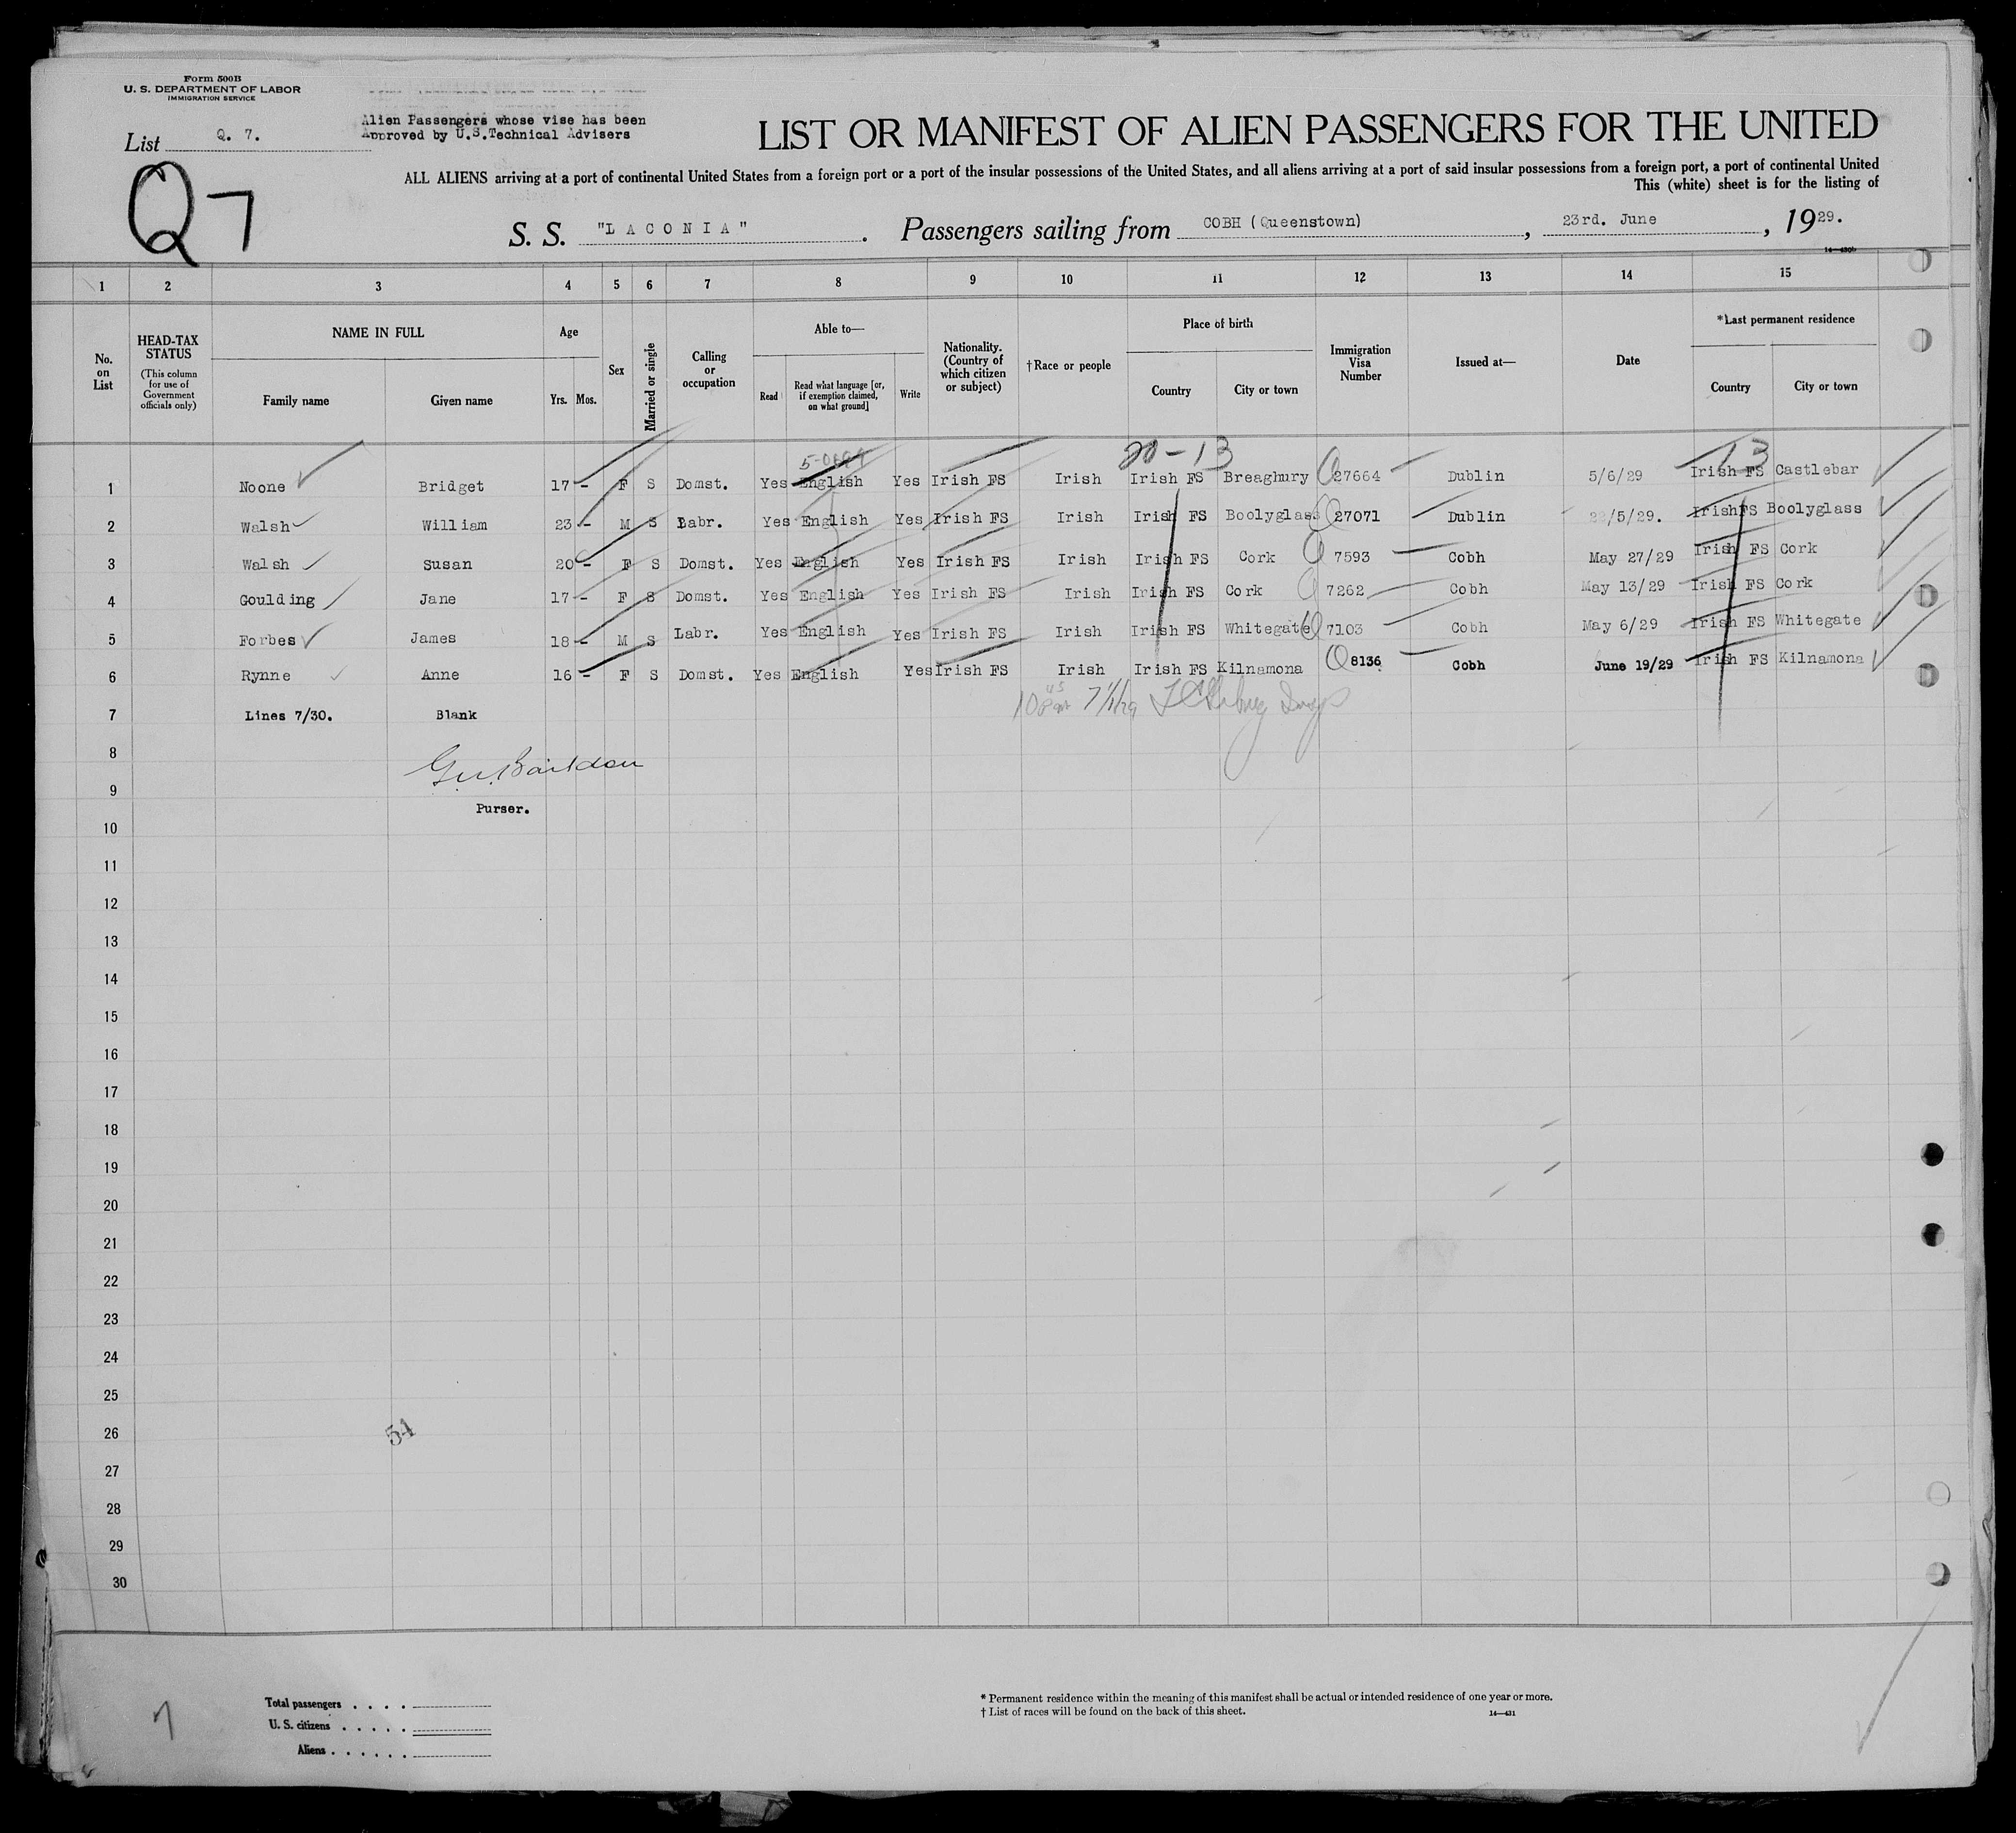 Form 500B
U. S. DEPARTMENT OF LABOR
IMMIGRATION SERVICE
List Q. 7.
Alien Passengers whose vise has been
Approved by U.S.Technical Advisers
Q7
LIST OR MANIFEST OF ALIEN PASSENGERS FOR THE UNITED
ALL ALIENS arriving at a port of continental United States from a foreign port or a port of the insular possessions of the United States, and all aliens arriving at a port of said insular possessions from a foreign port, a port of continental United
This (white) sheet is for the listing of
S. S. "LACONIA" . Passengers sailing from COBH (Queenstown) , 23rd. June , 1929.
14—430b
1 2 3 4 5 6 7 8 9 10 11 12 13 14 15
No. on List
HEAD-TAX STATUS
(This column for use of Government officials only)
NAME IN FULL
Family name Given name
Age
Yrs. Mos.
Sex
Married or single
Calling or occupation
Able to—
Read Read what language [or, if exemption claimed, on what ground] Write
Nationality. (Country of which citizen or subject)
†Race or people
Place of birth
Country City or town
Immigration Visa Number
Issued at—
Date
*Last permanent residence
Country City or town
20-13 13
1 Noone Bridget 17 - F S Domst. Yes English Yes Irish FS Irish Irish FS Breaghury 27664 Dublin 5/6/29 Irish FS Castlebar
2 Walsh William 23 - M S Labr. Yes English Yes Irish FS Irish Irish FS Boolyglass 27071 Dublin /5/29. Irish FS Boolyglass
3 Walsh Susan 20 - F S Domst. Yes English Yes Irish FS Irish Irish FS Cork 7593 Cobh May 27/29 Irish FS Cork
4 Goulding Jane 17 - F S Domst. Yes English Yes Irish FS Irish Irish FS Cork 7262 Cobh May 13/29 Irish FS Cork
5 Forbes James 18 - M S Labr. Yes English Yes Irish FS Irish Irish FS Whitegate 7103 Cobh May 6/29 Irish FS Whitegate
6 Rynne Anne 16 - F S Domst. Yes English Yes Irish FS Irish Irish FS Kilnamona 8136 Cobh June 19/29 Irish FS Kilnamona
7 Lines 7/30. Blank
8
9
Purser.
10
11
12
13
14
15
16
17
18
19
20
21
22
23
24
25
26
54
27
28
29
30
7
Total passengers . . . .
U. S. citizens . . . . .
Aliens . . . . . .
* Permanent residence within the meaning of this manifest shall be actual or intended residence of one year or more.
† List of races will be found on the back of this sheet.
14—431